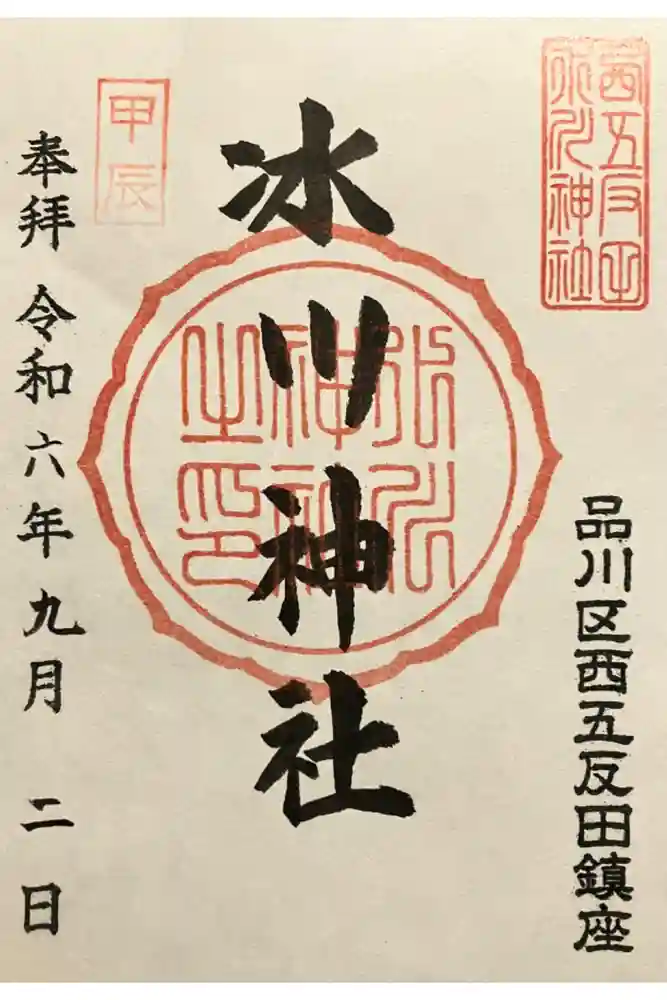 西五反田
氷川神社
品川区西五反田鎮座
氷川神社
氷川
神社
之印
甲辰
奉拝 令和六年九月 二日